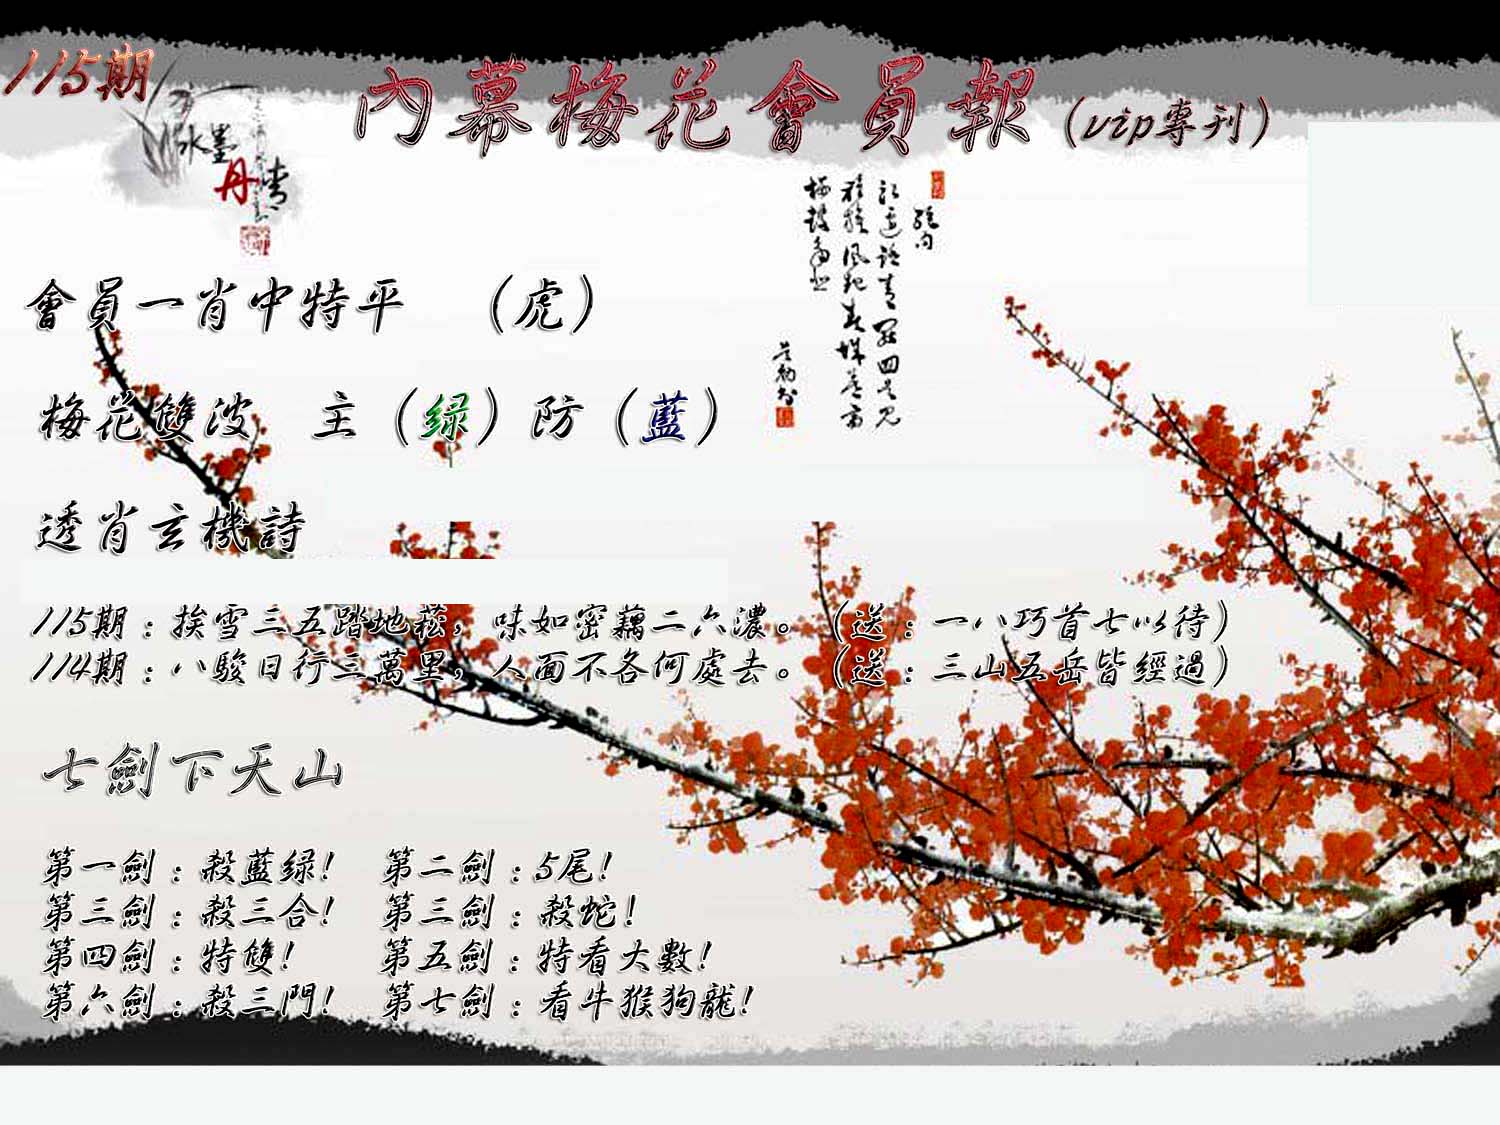 115期
內幕梅花會員報(vip專刊)
水墨
丹青
會員一肖中特平 (虎)
梅花雙波 主(绿)防(藍)
透肖玄機詩
115期:挨雪三五踏地菘,味如密藕二六濃。(送:一八巧首七以待)
114期:八駿日行三萬里,人面不各何處去。(送:三山五岳皆經過)
七劍下天山
第一劍:殺藍绿! 第二劍:5尾!
第三劍:殺三合! 第三劍:殺蛇!
第四劍:特雙! 第五劍:特看大數!
第六劍:殺三門! 第七劍:看牛猴狗龍!